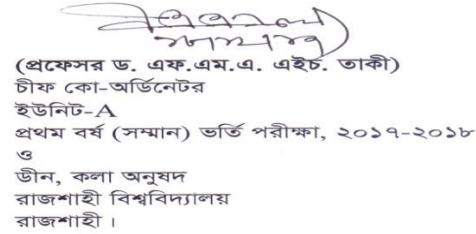 (প্রফেসর ড. এফ.এম.এ. এইচ. তাকী)
চীফ কো-অর্ডিনেটর
ইউনিট-A
প্রথম বর্ষ (সম্মান) ভর্তি পরীক্ষা, ২০১৭-২০১৮
ও
ডীন, কলা অনুষদ
রাজশাহী বিশ্ববিদ্যালয়
রাজশাহী।